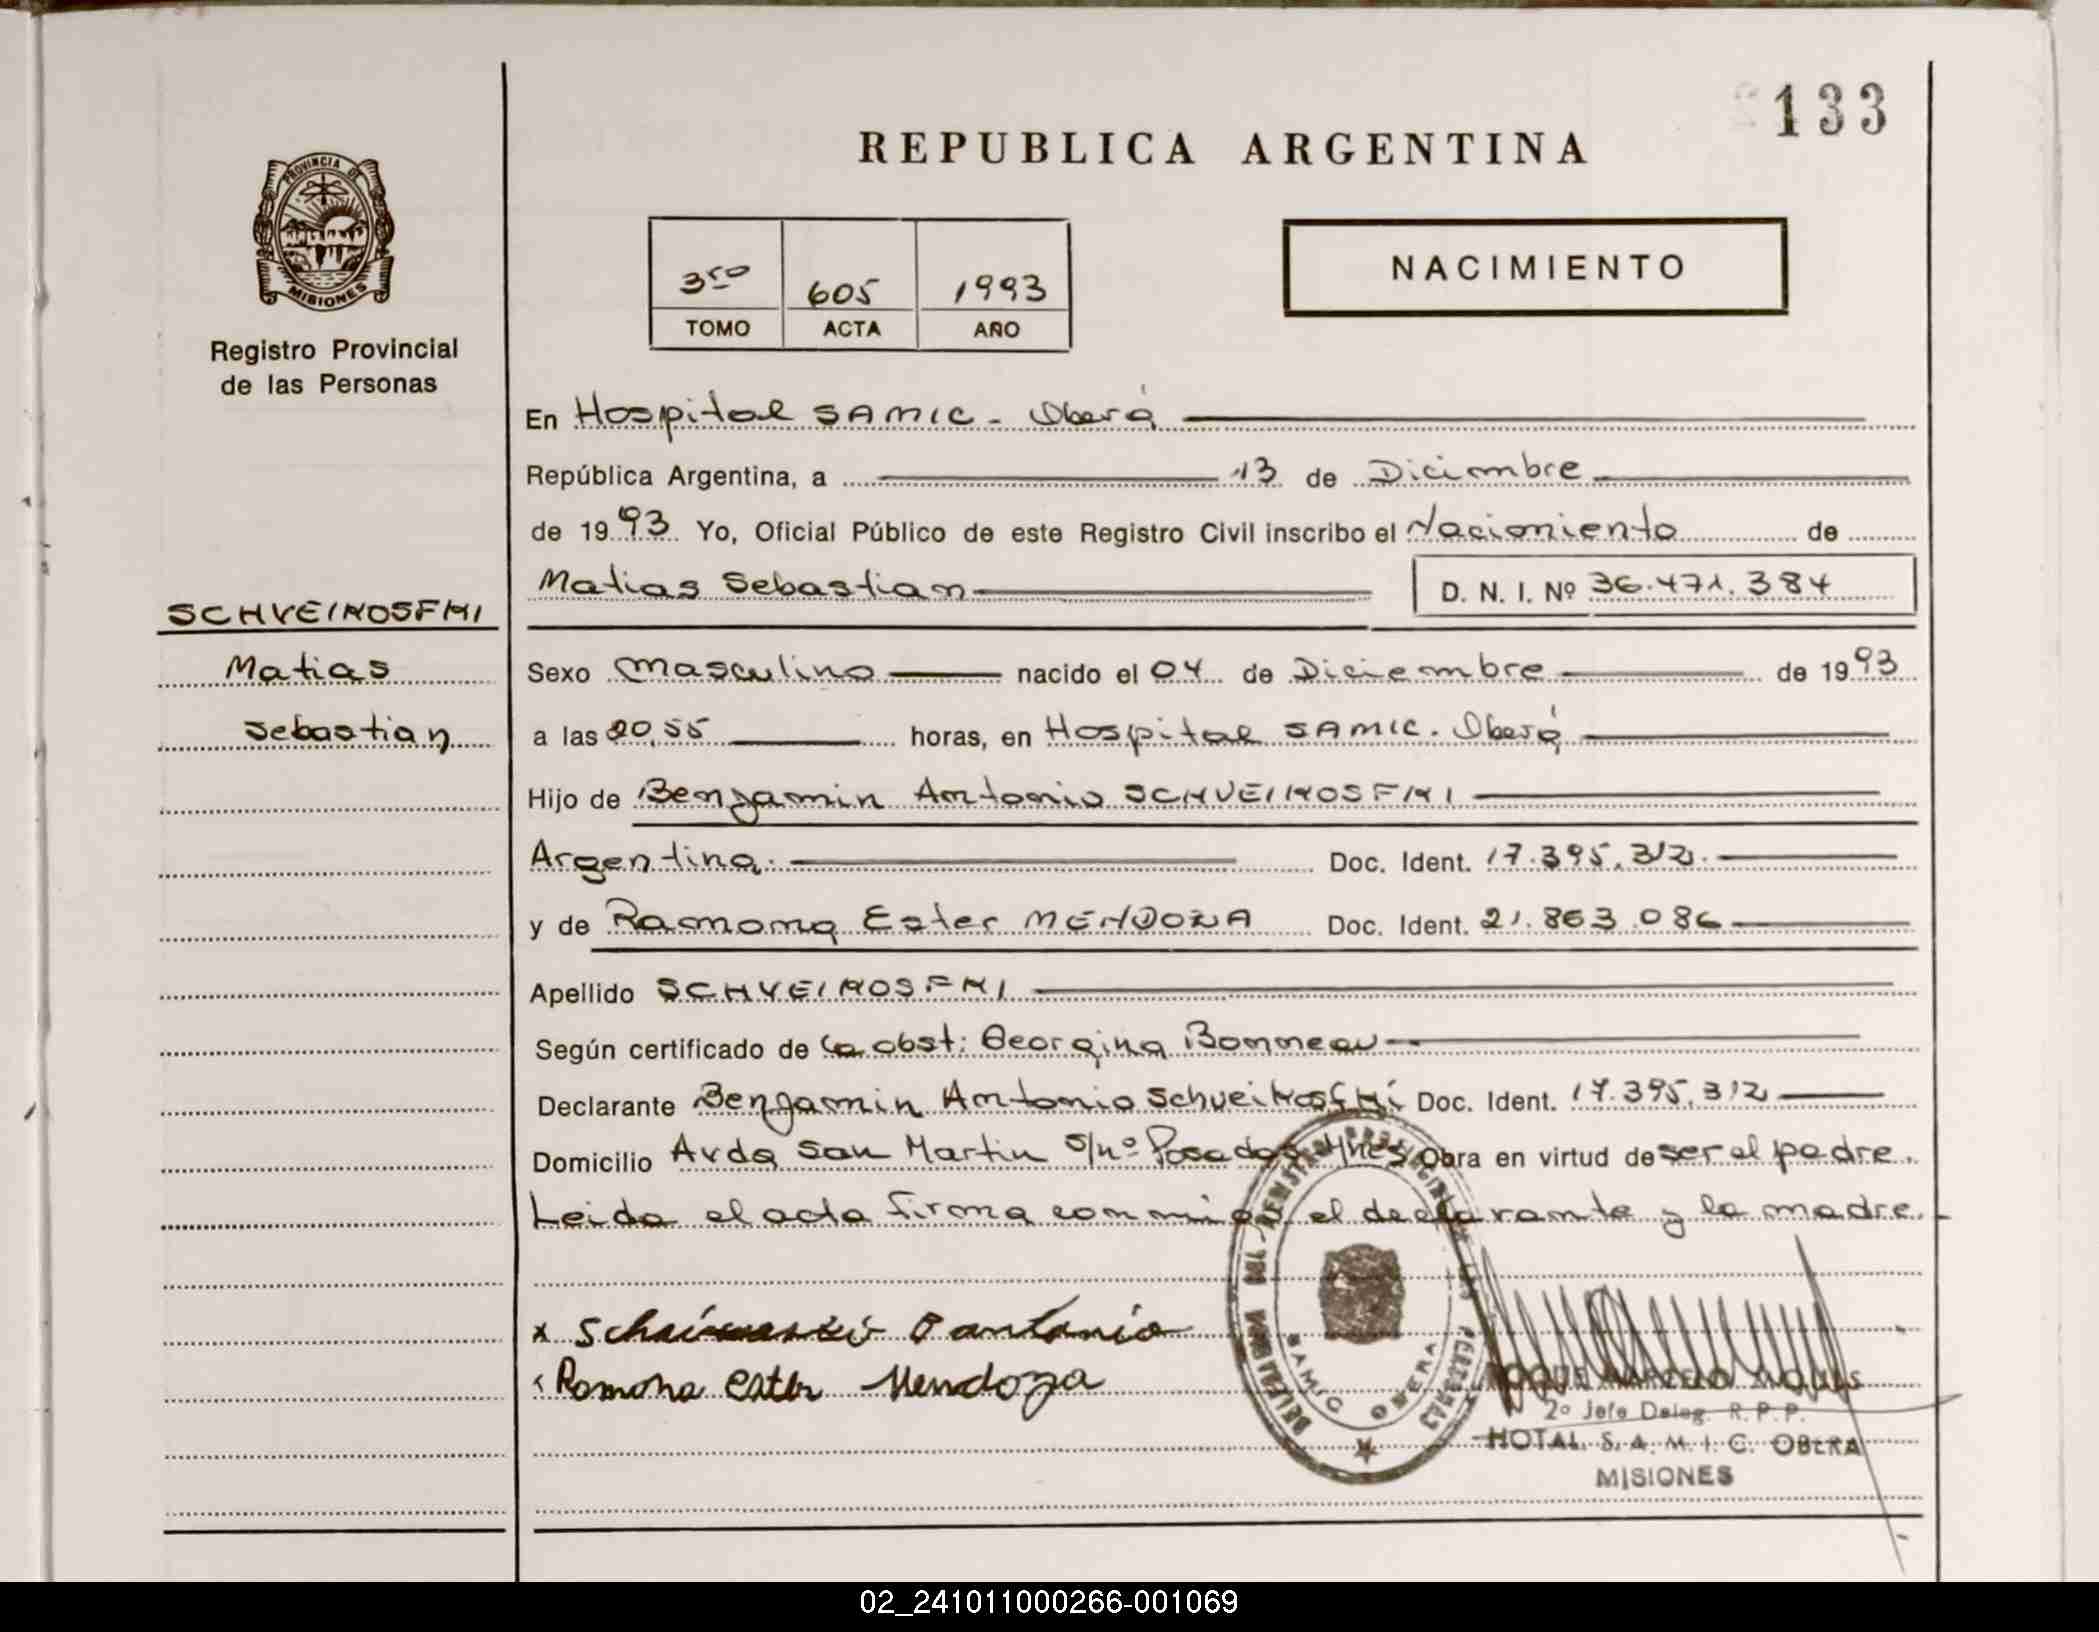 133
REPUBLICA ARGENTINA
PROVINCIA DE
MISIONES
Registro Provincial
de las Personas
3ro 605 1993
TOMO ACTA AÑO
NACIMIENTO
En Hospital SAMIC - Oberá
República Argentina, a 13 de Diciembre
de 1993 Yo, Oficial Público de este Registro Civil inscribo el Nacimiento de
Matias Sebastian D. N. I. Nº 36.471.384
SCHVEIKOSFKI
Matias
Sebastian
Sexo Masculino nacido el 04 de Diciembre de 1993
a las 20,55 horas, en Hospital SAMIC. Oberá
Hijo de Benjamin Antonio SCHVEIKOSFKI
Argentina. Doc. Ident. 17.395.312.
y de Ramona Ester MENDOZA Doc. Ident. 21.863.086
Apellido SCHVEIKOSFKI
Según certificado de la obst: Georgina Bonneau
Declarante Benjamin Antonio Schveikosfki Doc. Ident. 17.395.312
Domicilio Avda San Martin s/nº Posadas Mnes Obra en virtud de ser el padre.
Leida el acta firma conmigo el declarante y la madre.
x B antonio
Ramona Ester Mendoza
DELEGACION DEL REGISTRO PROVINCIAL DE LAS PERSONAS
SAMIC OBERA
ROQUE MARCELO
2º Jefe Deleg. R.P.P.
HOTAL S.A.M.I.C. OBERA
MISIONES
02_241011000266-001069